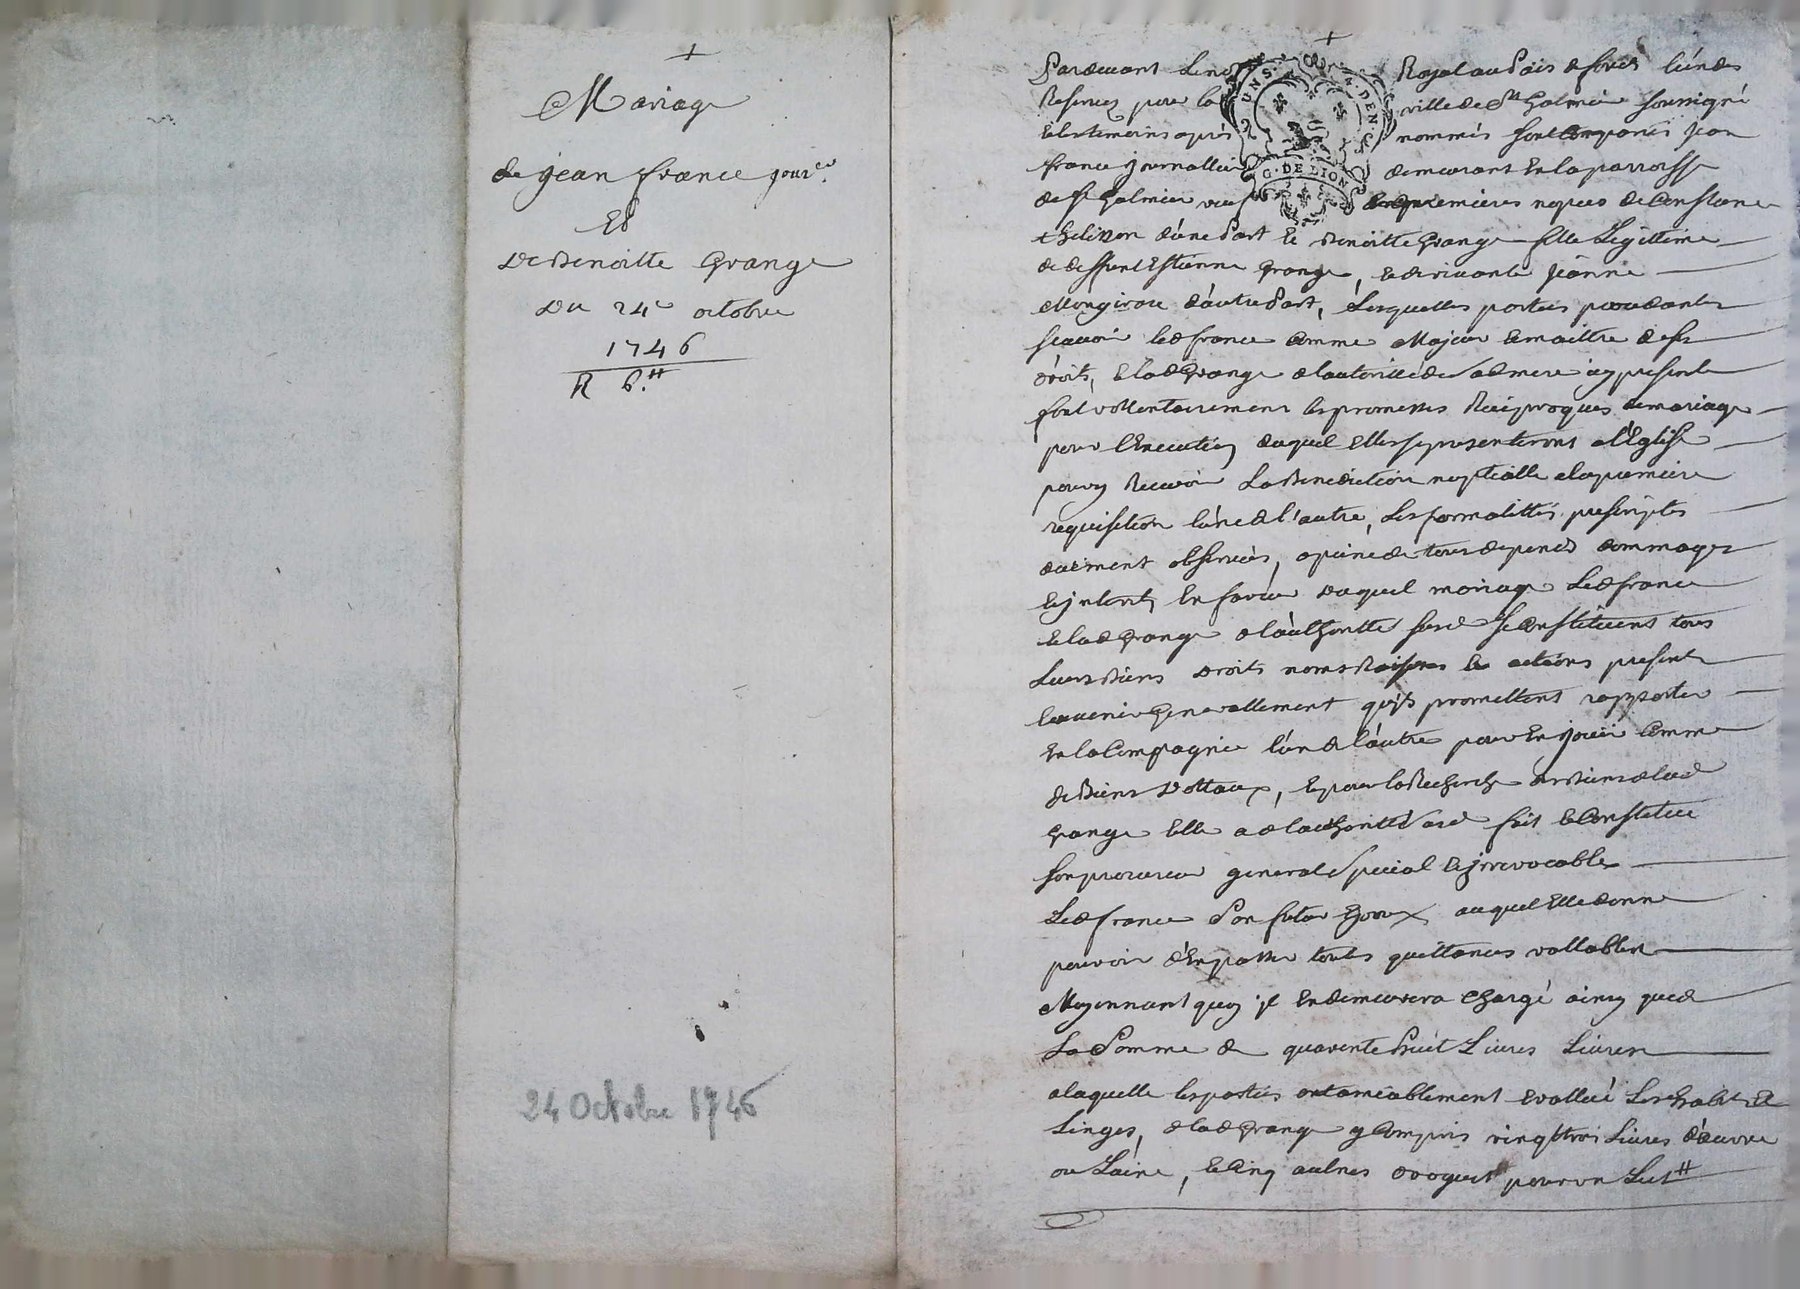 Mariage
de jean france jour.er
Et
De Benoitte Grange
Du 24e octobre
1746
R 6.tt
24 Octobre 1746
UNS. DEN.
G. DE LION
Pardevant Le no Royal au Païs de forés l'un des
Reserves pour la ville de St Galmier soussigné
et les temoins apres nommés sont comparus jean
france journallier demeurant en la parroisse
de St Galmier veuf en premieres nopces de Constance
d'une Part Et Benoitte Grange fille Legittime
de deffunt Estienne Grange, et de vivante jeanne
d'autre Part, Lesquelles parties procedantes
scavoir led france comme Majeur et maittre de ses
droits, et lad Grange de lautoritté de sad mere icy presente
font vollontairement les promesses Reciproques de mariage
pour l'Execution duquel elles se presenteront a l'Eglise
pour y Recevoir La Benediction nuptialle a la premiere
requisition l'un de l'autre, Les formalittés prescriptes
duëment observées, a peine de tous depends dommages
et jnterets, En faveur duquel mariage Led france
et lad Grange de l'authoritté susd se Constituent tous
Leurs Biens Droits noms Raisons et actions presents
et avenir Generallement qu'jls promettent rapporter
En la Compagnie l'un de l'autre pour En jouir Comme
de Biens Dottaux, et pour la Recherche des Biens de lad
Grange Elle a de lauthoritté susd fait et Constitue
son procureur general Special et jrrevocable
Led france Son futur Epoux auquel Elle donne
pouvoir d'En passer toutes quittances vallables
Moyennant quoy jl En demeurera chargé ainsy que de
La Somme de quarente huit Livres Livres
a laquelle les parties ont amëablement evallué Les habits et
Linges, de lad Grange y Compris vingt trois Livres d'œuvre
ou Laine, et Cinq aulnes droguet pour un Lict tt